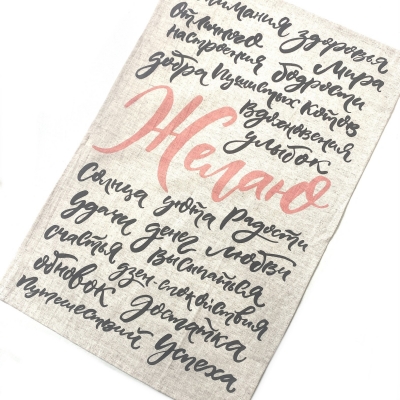 внимания здоровья
отличного мира
настроения бодрости
добра пушистых котов
вдохновения
улыбок
Желаю
солнца уюта радости
удачи денег любви
счастья высыпаться
обновок дзен-спокойствия
путешествий достатка
успеха